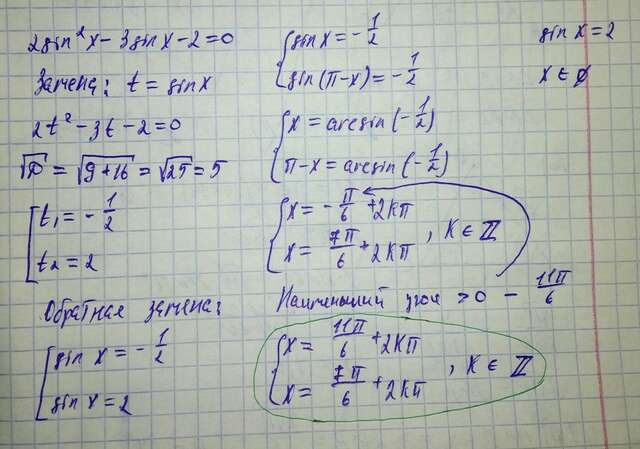 2sin²x - 3sinx - 2 = 0
Замена: t = sinx
2t² - 3t - 2 = 0
√D = √(9+16) = √25 = 5
[ t₁ = -1/2
t₂ = 2
Обратная замена:
[ sin x = -1/2
sin x = 2
{ sinx = -1/2
sin(π-x) = -1/2
{ x = arcsin(-1/2)
π-x = arcsin(-1/2)
{ x = -π/6 + 2Kπ
x = 7π/6 + 2Kπ , K ∈ ℤ
Наименьший угол >0 - 11π/6
{ x = 11π/6 + 2Kπ
x = 7π/6 + 2Kπ , K ∈ ℤ
sin x = 2
x ∈ ∅